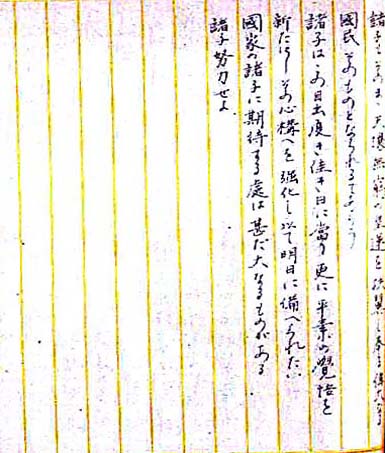 諸子こそは天壌無窮の皇運を扶翼し奉る偉大なる
国民そのものとなられるであらう
諸子は今日出度き佳き日に當り更に平素の覺悟を
新たにしその心構へを強化し以て明日に備へられたい
國家の諸子に期待する處は甚だ大なるものがある
諸子努力せよ